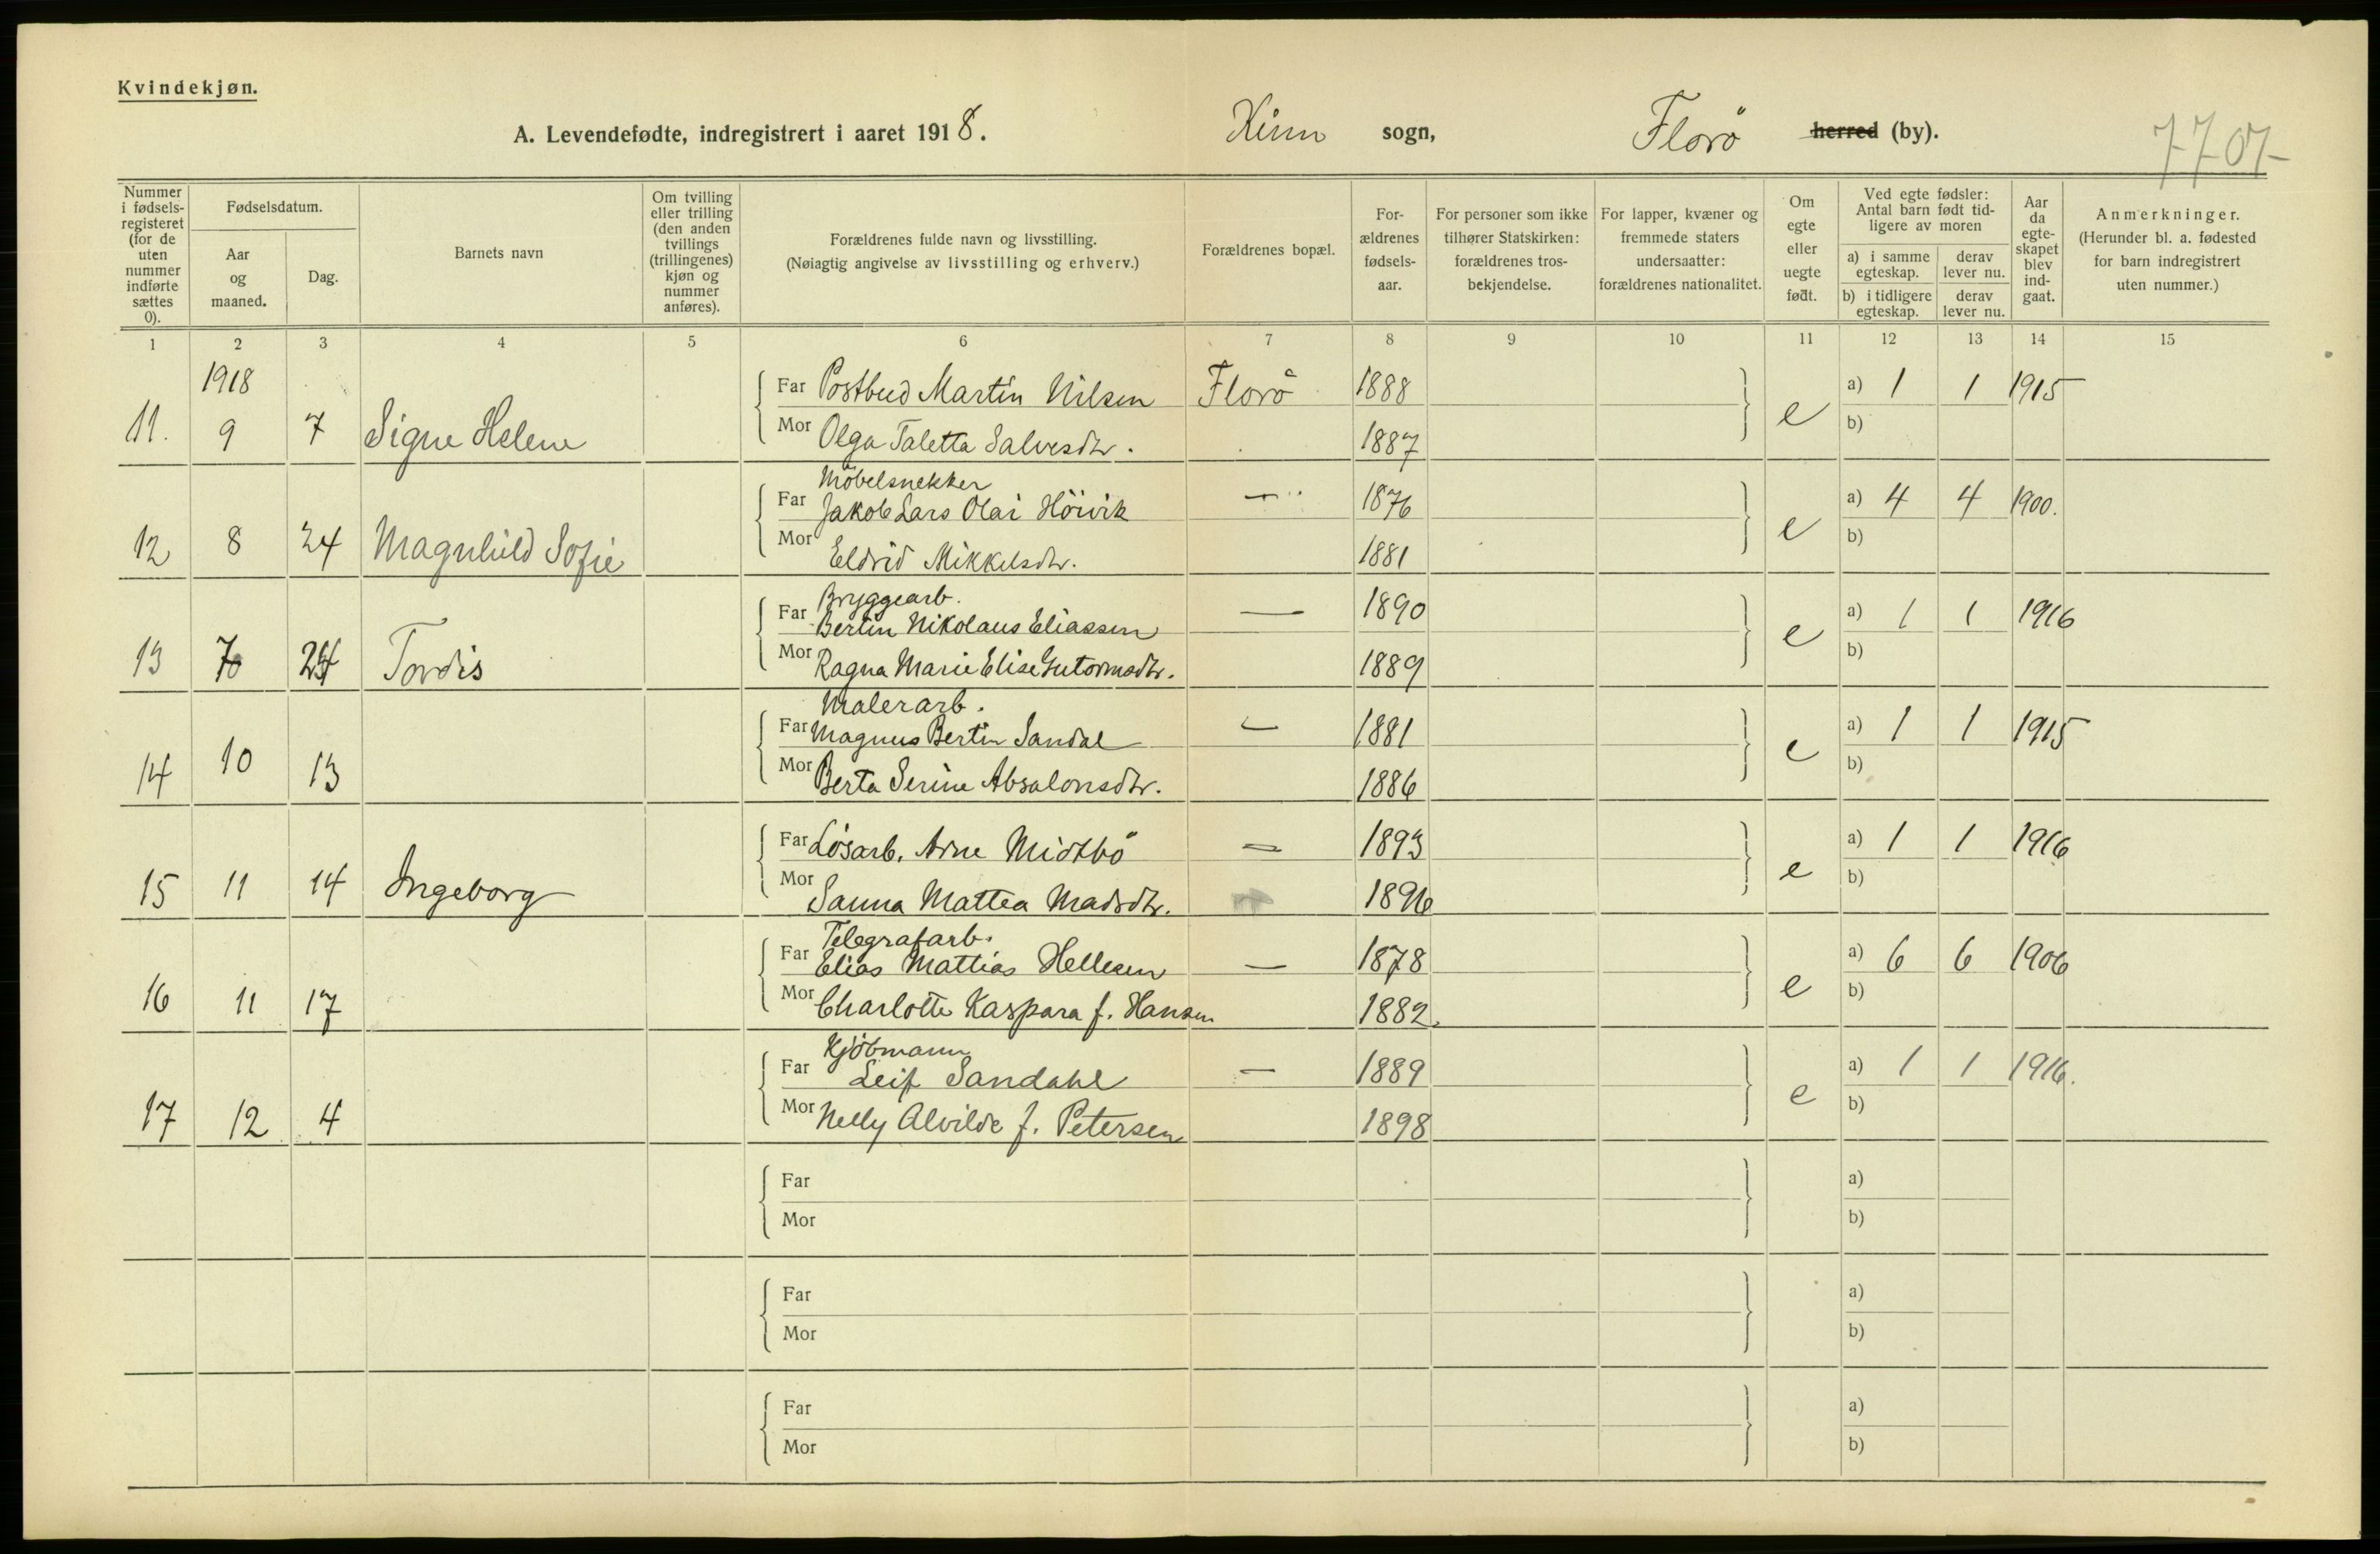 Kvindekjøn.
A. Levendefødte, indregistrert i aaret 1918. Kinn sogn, Florö herred (by).
7707
Nummer i fødselsregisteret (for de uten nummer indførte sættes 0).
Fødselsdatum.
Aar og maaned.
Dag.
Barnets navn
Om tvilling eller trilling (den anden tvillings (trillingenes) kjøn og nummer anføres).
Forældrenes fulde navn og livsstilling.
(Nøiagtig angivelse av livsstilling og erhverv.)
Forældrenes bopæl.
For-ældrenes fødsels-aar.
For personer som ikke tilhører Statskirken: forældrenes tros-bekjendelse.
For lapper, kvæner og fremmede staters undersaatter: forældrenes nationalitet.
Om egte eller uegte født.
Ved egte fødsler: Antal barn født tid-ligere av moren
a) i samme egteskap.
derav lever nu.
b) i tidligere egteskap.
derav lever nu.
Aar da egte-skapet blev ind-gaat.
Anmerkninger.
(Herunder bl. a. fødested for barn indregistrert uten nummer.)
1 2 3 4 5 6 7 8 9 10 11 12 13 14 15
1918
Far Postbud Martin Nilsen Florö 1888 a) 1 1 1915
11. 9 7 Signe Helene Mor Olga Taletta Salvesdtr. 1887 e b)
Möbelsnekker
Far Jakob Lars Olai Höivik — 1876 a) 4 4 1900.
12 8 24 Magnhild Sofie Mor Eldrid Mikkelsdtr. 1881 e b)
Bryggearb.
Far Bertin Nikolaus Eliassen — 1890 a) 1 1 1916
13 Tordis Mor Ragna Marie Elise Gutormsdtr. 1889 e b)
Malerarb.
Far Magnus Bertin Sandal — 1881 a) 1 1 1915
14 10 13 Mor Berta Serine Absalonsdtr. 1886 e b)
Far Løsarb. Arne Midtbö — 1893 a) 1 1 1916
15 11 14 Ingeborg Mor Sanna Mattea Madsdtr. 1896 e b)
Telegrafarb.
Far Elias Mattias Hellesen — 1878 a) 6 6 1906
16 11 17 Mor Charlotte Kaspara f. Hansen 1882. e b)
Kjöbmann
Far Leif Sandahl — 1889 a) 1 1 1916.
17 12 4 Mor Nelly Alvilde f. Petersen 1898 e b)
Far a)
Mor b)
Far a)
Mor b)
Far a)
Mor b)